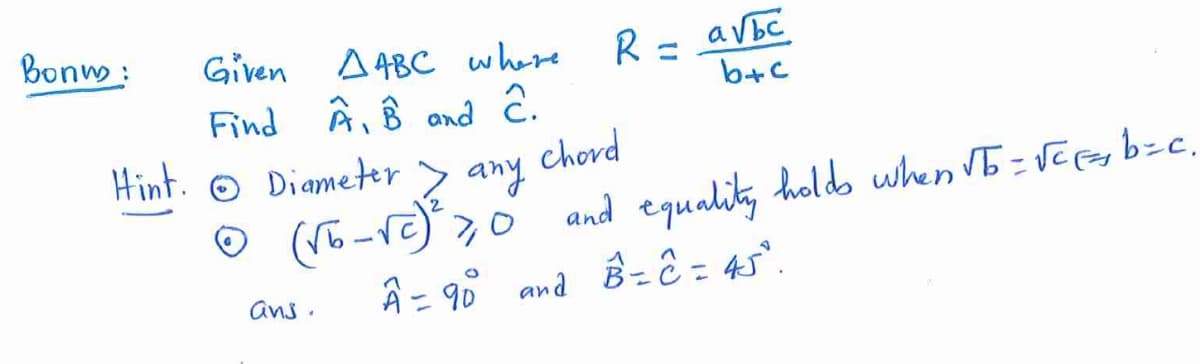 Bonus: Given △ABC where R = a√bc / b+c
Find Â, B̂ and Ĉ.
Hint. ⊙ Diameter > any chord
⊙ (√b - √c)² ⩾ 0 and equality holds when √b = √c ⇔ b=c.
ans. Â = 90° and B̂ = Ĉ = 45°.